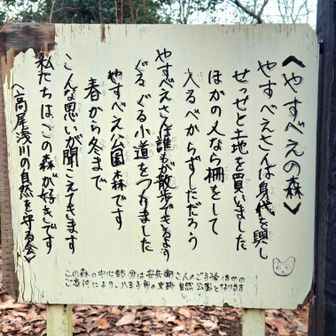 〈やすべえの森〉
やすべえさんは身代を興し
せっせと土地を買いました
ほかの人なら柵をして
入るべからずしただろう
やすべえさんは誰もが散歩できるよう
ぐるぐる小道をつけました
やすべえ公園森です
春から冬まで
こんな思いが聞こえてきます
私たちはこの森が好きです
(高尾浅川の自然を守る会)
この森の中心部分は安兵衛さんのご子孫ほかの
ご寄付により、八王子市の史跡 自然 公園となります